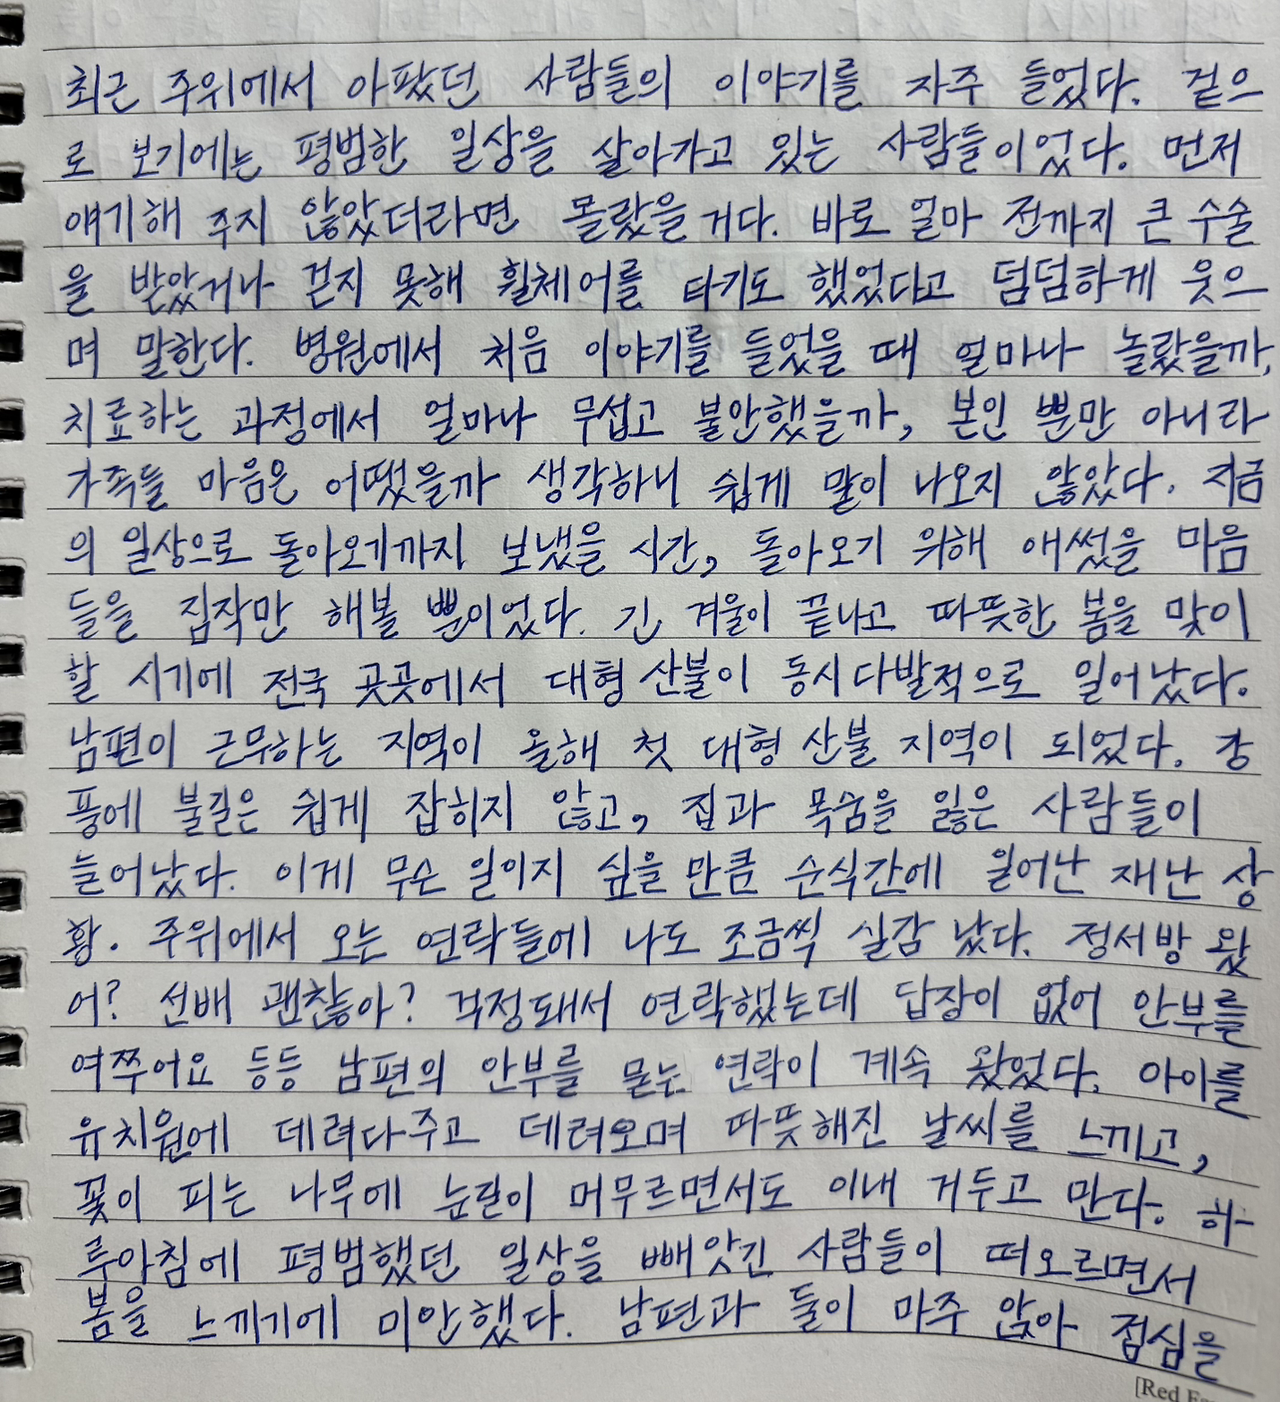 최근 주위에서 아팠던 사람들의 이야기를 자주 들었다. 겉으
로 보기에는 평범한 일상을 살아가고 있는 사람들이었다. 먼저
얘기해 주지 않았더라면 몰랐을 거다. 바로 얼마 전까지 큰 수술
을 받았거나 걷지 못해 휠체어를 타기도 했었다고 덤덤하게 웃으
며 말한다. 병원에서 처음 이야기를 들었을 때 얼마나 놀랐을까,
치료하는 과정에서 얼마나 무섭고 불안했을까, 본인 뿐만 아니라
가족들 마음은 어땠을까 생각하니 쉽게 말이 나오지 않았다. 지금
의 일상으로 돌아오기까지 보냈을 시간, 돌아오기 위해 애썼을 마음
들을 짐작만 해볼 뿐이었다. 긴 겨울이 끝나고 따뜻한 봄을 맞이
할 시기에 전국 곳곳에서 대형 산불이 동시다발적으로 일어났다.
남편이 근무하는 지역이 올해 첫 대형 산불 지역이 되었다. 강
풍에 불길은 쉽게 잡히지 않고, 집과 목숨을 잃은 사람들이
늘어났다. 이게 무슨 일이지 싶을 만큼 순식간에 일어난 재난 상
황. 주위에서 오는 연락들에 나도 조금씩 실감 났다. 정서방 왔
어? 선배 괜찮아? 걱정돼서 연락했는데 답장이 없어 안부를
여쭈어요 등등 남편의 안부를 묻는 연락이 계속 왔었다. 아이를
유치원에 데려다주고 데려오며 따뜻해진 날씨를 느끼고,
꽃이 피는 나무에 눈길이 머무르면서도 이내 거두고 만다. 하
루아침에 평범했던 일상을 빼앗긴 사람들이 떠오르면서
봄을 느끼기에 미안했다. 남편과 둘이 마주 앉아 점심을